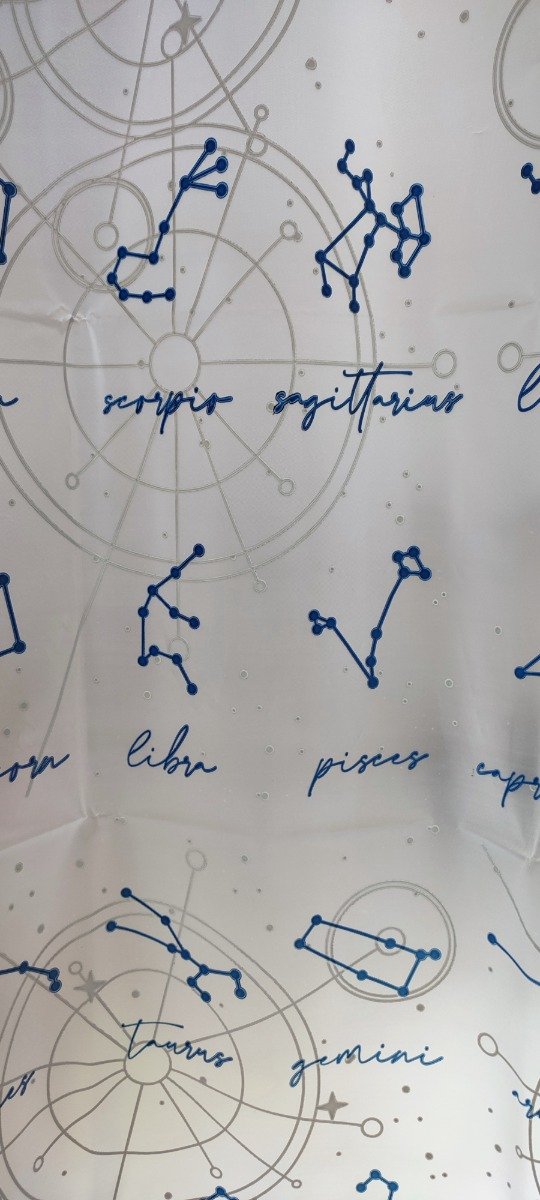 scorpio sagittarius
corn libra pisces capr
taurus gemini